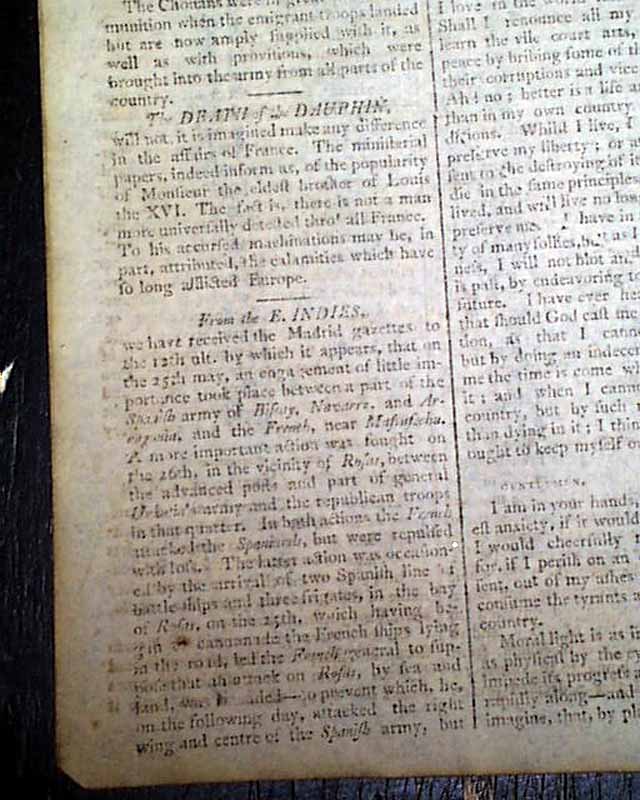 The Chouans were in great
munition when the emigrant troops landed
but are now amply supplied with it, as
well as with provisions, which were
brought into the army from all parts of the
country.
The DEATH of the DAUPHIN,
will not, it is imagined make any difference
in the affairs of France. The ministerial
papers, indeed inform us, of the popularity
of Monsieur the eldest brother of Louis
the XVI. The fact is, there is not a man
more universally detested thro' all France.
To his accursed machinations may be, in
part, attributed, the calamities which have
so long afflicted Europe.
From the E. INDIES.
we have received the Madrid gazettes to
the 12th ult. by which it appears, that on
the 25th may, an engagement of little im-
portance took place between a part of the
Spanish army of Biscay, Navarre, and Ar-
and the French, near
A more important action was fought on
the 26th, in the vicinity of Rosas, between
the advanced posts and part of general
army and the republican troops
in that quarter. In both actions the French
attacked the Spaniards, but were repulsed
with loss. The latter action was occasion-
ed by the arrival of two Spanish line of
battle ships and three frigates, in the bay
of Rosas, on the 25th, which having be-
gun to cannonade the French ships lying
in the road, led the French general to sup-
pose that an attack on Rosas, by sea and
land, was to prevent which, he,
on the following day, attacked the right
wing and centre of the Spanish army, but
I love in the world
Shall I renounce all my
learn the vile court arts,
peace by bribing some of th
their corruptions and vices
Ah! no; better is a life
than in my own country
ditions. Whilst I live, I
preserve my liberty; or
sent to the destroying of it
die in the same principles
lived, and will live no lon
preserve me. I have in
ty of many follies, but as I
ness, I will not blot and
is past, by endeavoring to
future. I have ever ha
that should God cast me
tion, as that I canno
but by doing an indecen
me the time is come wh
it; and when I canno
country, but by such
than dying in it; I thin
ought to keep myself o
GENTLEMEN,
I am in your hands,
est anxiety, if it would
I would cheerfully
for, if I perish on an
sent, out of my ashes
consume the tyrants a
country.
Moral light is as
as physical by the
impede its progress a
rapidly along—and
imagine, that, by pla